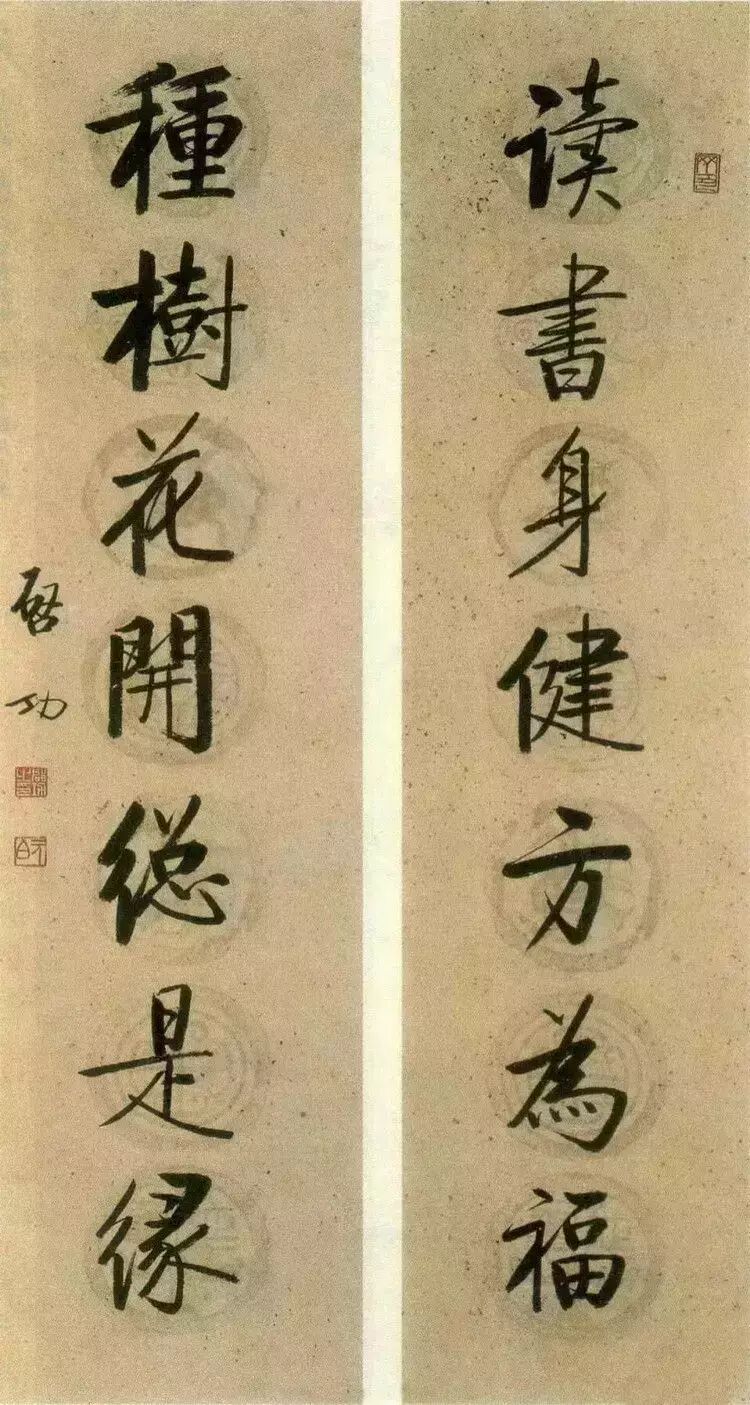 读書身健方為福
種樹花開総是緣
启功